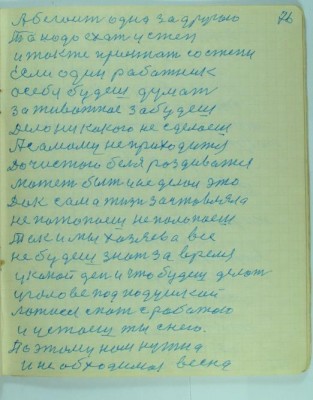 76
А бегоит одна за другою
То надо ехат и степ
и также приехат со степи
если один работник
о себя будеш думат
за животное забудеш
Дело никакого не сделаеш
А самому не приходится
До чистого беля роздиватся
может быт и не делои это
Дак сама жизн заставляла
не потопаеш не полопаеш
Так и мы хозяева все
не будеш знат за время
и какой ден и что будеш делат
и голове под подушкой
ложися спат с работою
и и стаеш ты с нею.
Поэтому нам нужна
и необходимая весна